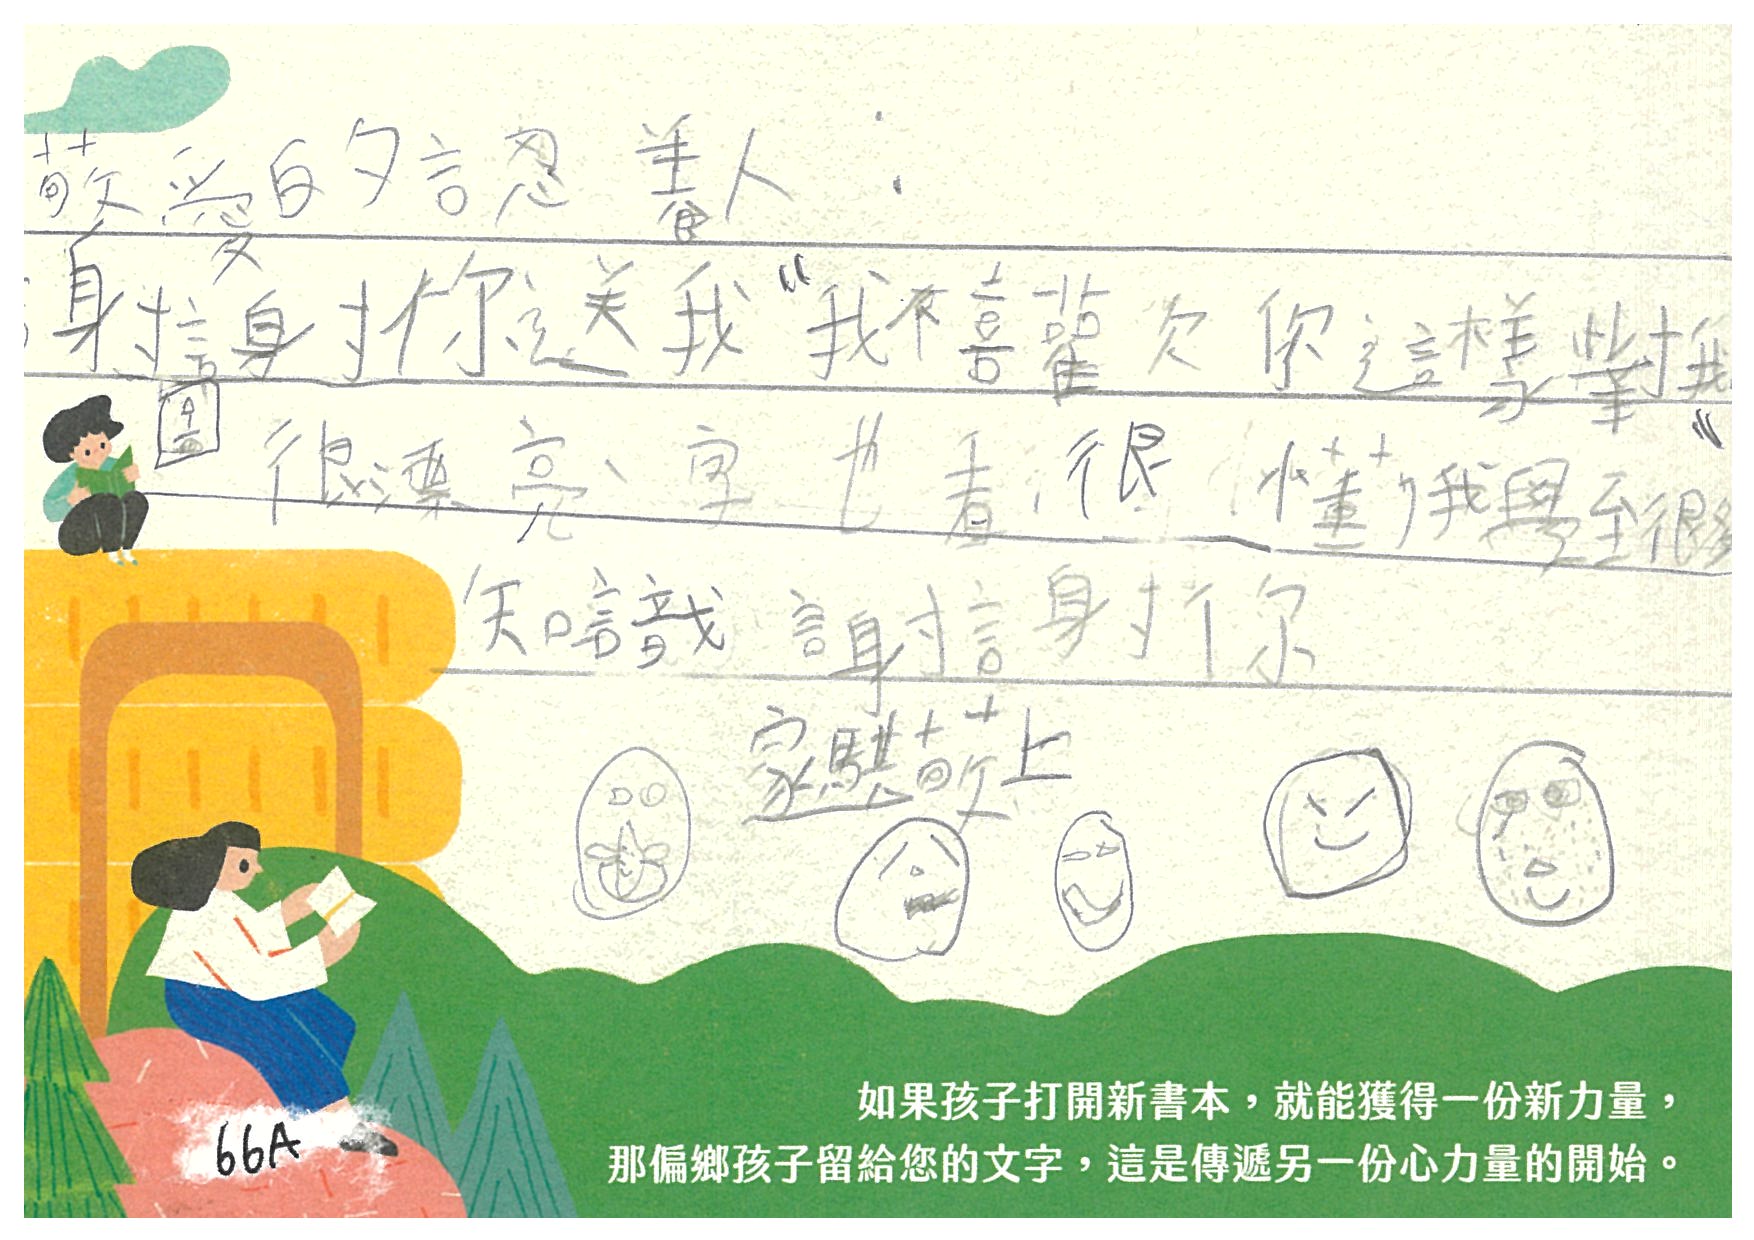 敬愛的夕認養人：
謝謝你送我“我不喜歡你這樣對我”
圖很漂亮、字也看很懂，我學至很多
知識謝謝你
家騏敬上
66A
如果孩子打開新書本，就能獲得一份新力量，
那偏鄉孩子留給您的文字，這是傳遞另一份心力量的開始。